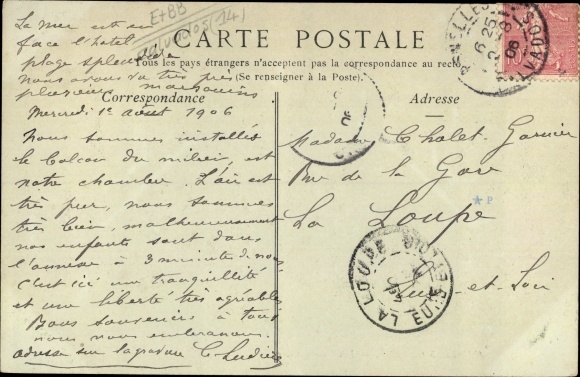 La mer est en
face l'hôtel
plage splendide
nous avons vu très près
plusieurs marsouins
E+BB
Calvados (14)
CARTE POSTALE
Tous les pays étrangers n'acceptent pas la correspondance au recto
(Se renseigner à la Poste).
Correspondance
Mercredi 1er août 1906
Nous sommes installés
le balcon du milieu, est
notre chambre. L'air est
très pur, nous sommes
très bien, malheureusement
nos enfants sont dans
l'annexe à 3 minutes de nous
C'est ici une tranquillité
et une liberté très agréables
Bons souvenirs à tous
nous vous embrassons
adresse sur la gravure
Adresse
Madame Chalet-Garnier
Rue de la Gare
La Loupe
Eure-et-Loir
*P
LA LOUPE
EURE-ET-LOIR
6 25
CALVADOS
10